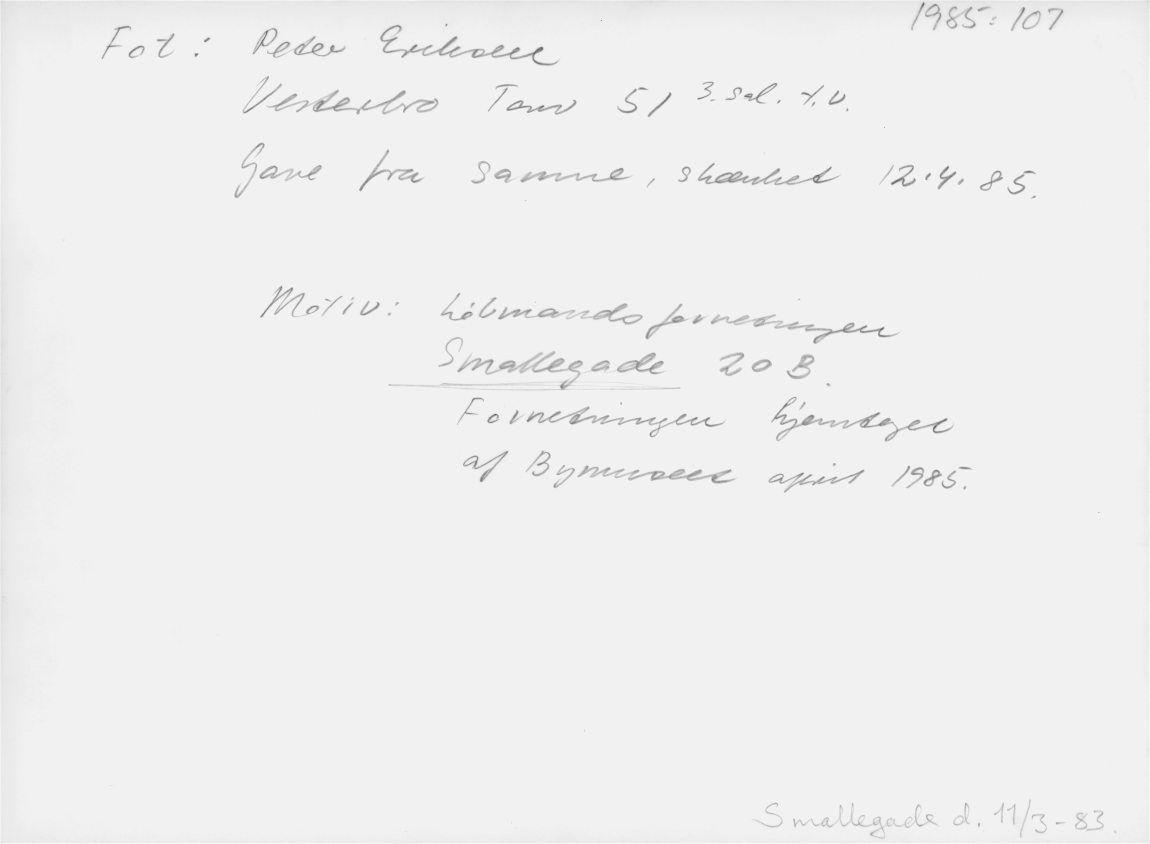 1985:107
Fot: Peter Eriksen
Vesterbro Torv 51 3. sal. t.v.
Gave fra samme, skænket 12.4.85.
Motiv: Købmandsforretningen
Smallegade 20 B.
Forretningen hjemtaget
af Bymuseet april 1985.
Smallegade d. 11/3-83.